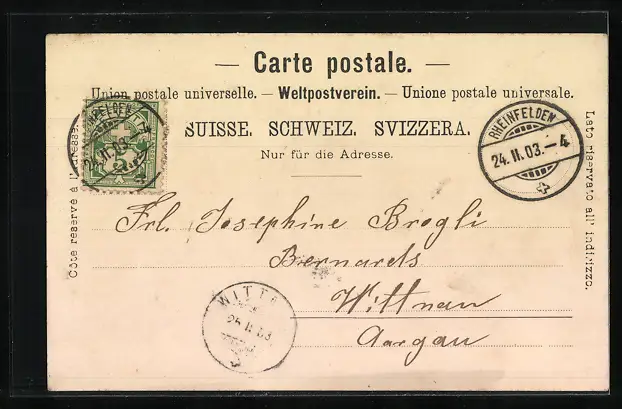 — Carte postale. —
Union postale universelle. — Weltpostverein. — Unione postale universale.
SUISSE. SCHWEIZ. SVIZZERA.
Nur für die Adresse.
Côte réservé à l'adresse.
Lato riservato all' indirizzo.
RHEINFELDEN
24. II. 03. – 4
5
RHEINFELDEN
24. II. 03. – 4
Frl. Josephine Brogli
Bernarets
Wittnau
Aargau
WITT
25 II 03